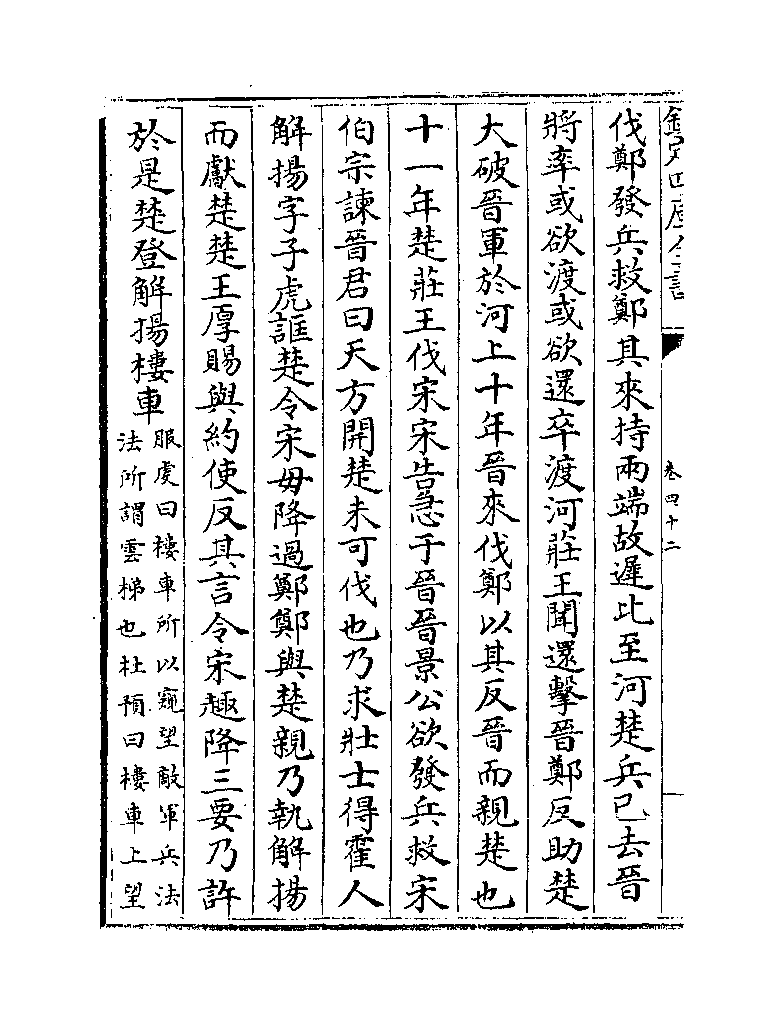 欽定四庫全書
卷四十二
伐鄭發兵救鄭其來持兩端故遲比至河楚兵已去晉
將率或欲渡或欲還卒渡河莊王聞還擊晉鄭反助楚
大破晉軍於河上十年晉來伐鄭以其反晉而親楚也
十一年楚莊王伐宋宋告急于晉晉景公欲發兵救宋
伯宗諫晉君曰天方開楚未可伐也乃求壯士得霍人
解揚字子虎誆楚令宋毋降過鄭鄭與楚親乃執解揚
而獻楚楚王厚賜與約使反其言令宋趣降三要乃許
於是楚登解揚樓車
服虔曰樓車所以窺望敵軍兵法
法所謂雲梯也杜預曰樓車上望